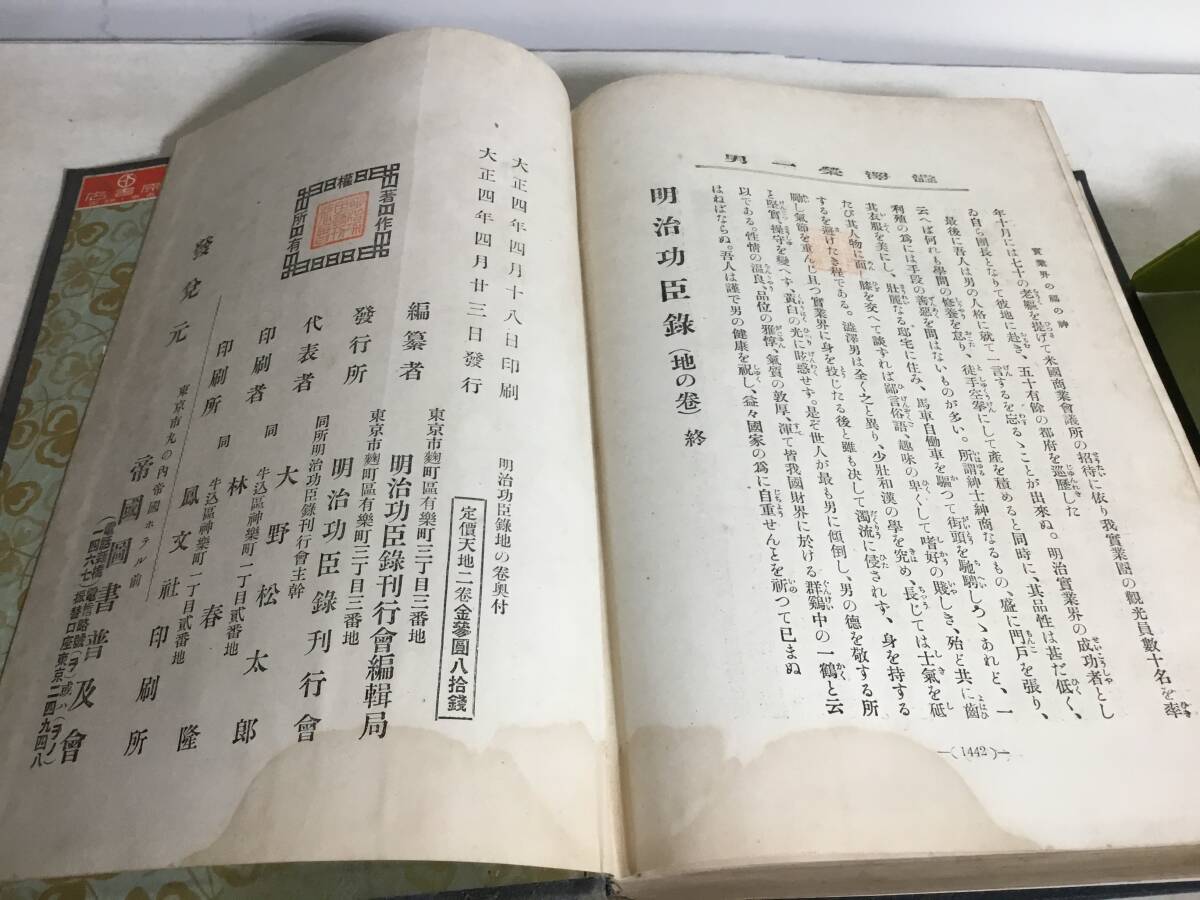 男一榮澤澁
實業界の福の神
年十月には七十の老軀を提げて米國商業會議所の招待に依り我實業團の觀光員數十名を率
ゐ自ら團長となりて彼地に赴き、五十有餘の都府を巡歷した
最後に吾人は男の人格に就て一言するを忘るゝことが出來ぬ。明治實業界の成功者とし
云へば何れも學問の修養を怠り、徒手空拳にして產を積めると同時に、其品性は甚だ低く、
利殖の爲には手段の善惡を問はないものが多い。所謂紳士紳商なるもの、盛に門戸を張り、
其衣服を美にし、壯麗なる邸宅に住み、馬車自働車を驅つて街頭を馳騁しつゝあれど、一
たび其人物に面し膝を交へて談ずれば鄙言俗語、趣味の卑くして嗜好の賤しき、殆と共に齒
するを避けたき程である。澁澤男は全く之と異り、少壯和漢の學を究め、長じては士氣を砥
勵し氣節を重んじ且つ實業界に身を投じたる後と雖も決して濁流に侵されず、身を持する
と堅實、操守を變へす、黃白の光に眩惑せす。是ぞ世人が最も男に傾倒し、男の德を敬する所
以である。性情の溫良、品位の雅惇、氣質の敦厚、渾て皆我國財界に於ける群鷄中の一鶴と云
はねばならぬ。吾人は謹で男の健康を祝し、益々國家の爲に自重せんとを祈つて已まぬ
明治功臣錄(地の卷)終
—(1442)—
大正四年四月十八日印刷
大正四年四月廿三日發行
著作權所有
明治功臣錄地の卷奧付
定價天地二卷(金參圓八拾錢)
東京市麴町區有樂町三丁目三番地
編纂者 明治功臣錄刊行會編輯局
東京市麴町區有樂町三丁目三番地
發行所 明治功臣錄刊行會
同所明治功臣錄刊行會主幹
代表者 大野松太郎
同 牛込區神樂町一丁目貳番地
印刷者 林春隆
同 牛込區神樂町一丁目貳番地
印刷所 鳳文社印刷所
東京市丸の內帝國ホテル前
發兌元 帝國圖書普及會